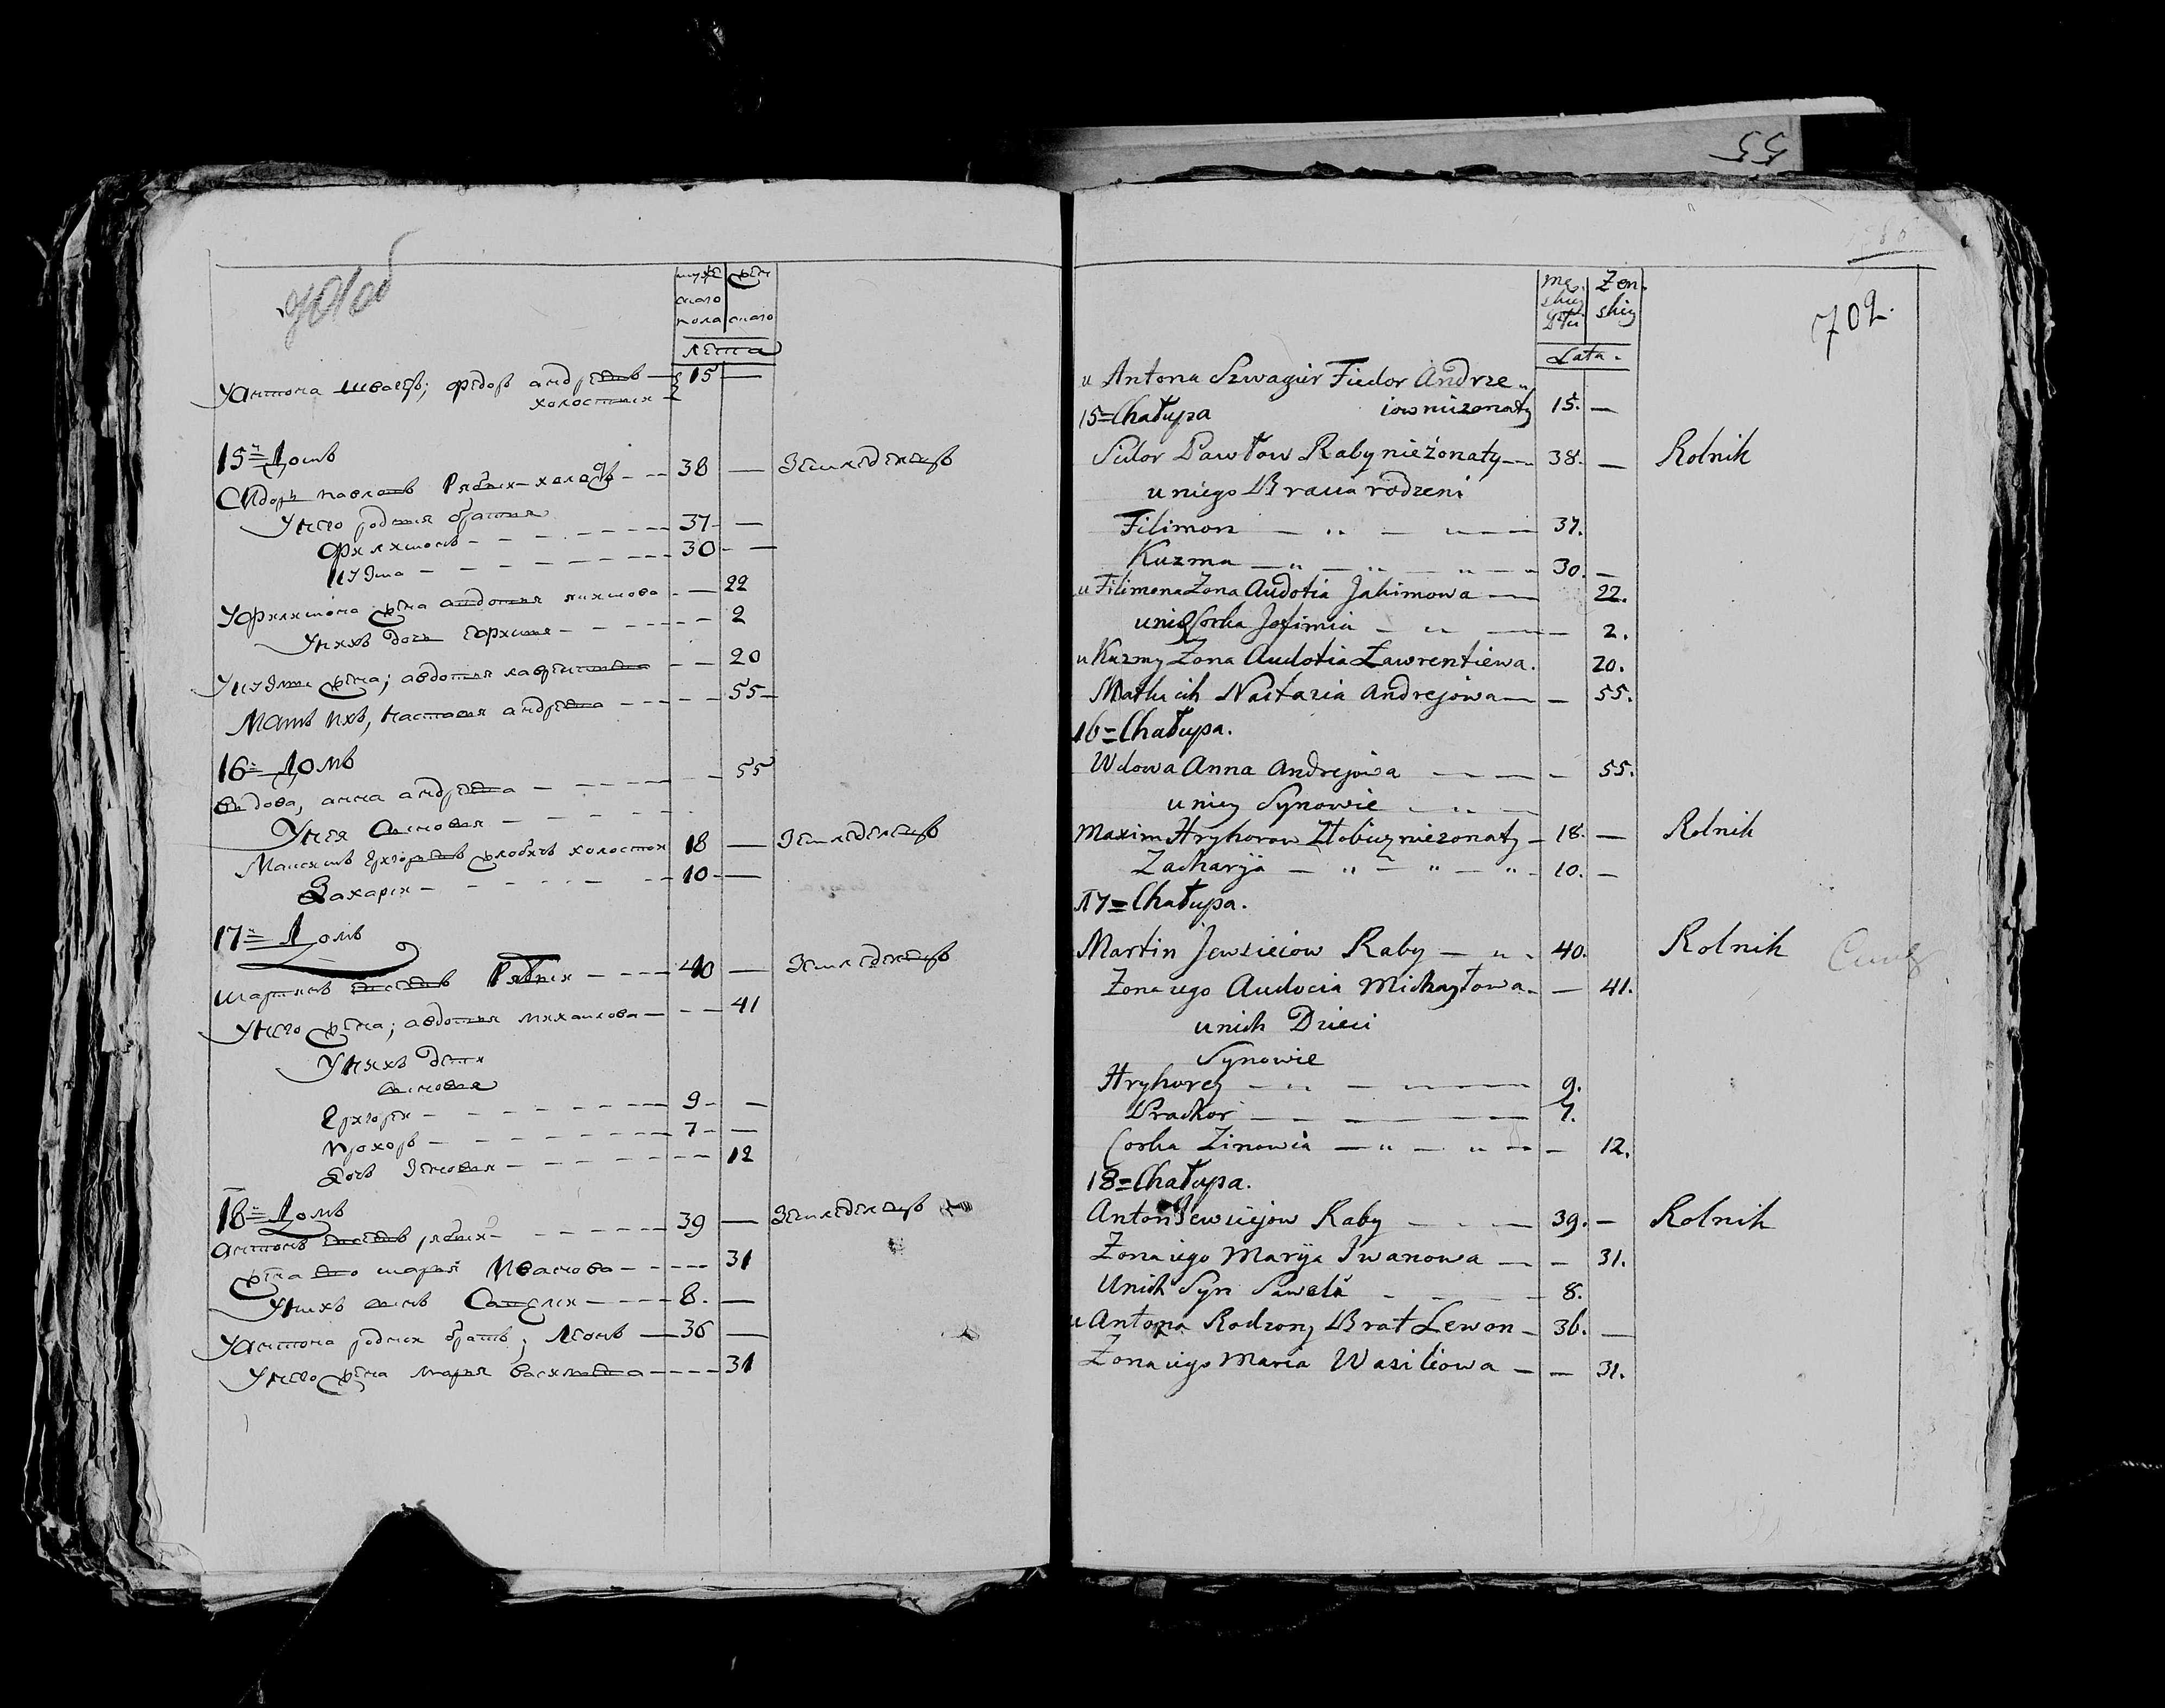 55
701 об
муже
ского
пола
жен
ского
лета
У Антона швагер; Федор андреев 15 —
холостий
15й Домъ
Сидоръ павловъ Рябий холостъ 38 — Земледелецъ
У него родния братия
Филимонъ 37 —
Кузма 30 —
У Филимона жена авдотия якимова — 22
У нихъ дочь Евфимия 2
У Кузми жена; авдотия лаврентиева — 20
Мать ихъ, настасия андреева 55 —
16й Домъ
Вдова, анна андреева — 55
У нея Синовия
Максимъ Григориевъ злобичъ холостой 18 — Земледелецъ
Захарий 10 —
17й Домъ
мартинъ евсеевъ Рябий 40 — Земледелецъ
У него жена; авдотия михаилова — 41
У нихъ дети
синовия
Григорий 9 —
прохоръ 7 —
Дочь Зеновия 12
18й Домъ
антонъ евсеевъ рябий 39 — Земледелецъ
жена его мария Иванова 31
У нихъ синъ Савелий 8. —
У Антона родний братъ; Леонъ 36 —
У него жена мария василиева 31
702.
Mę.
skiej
Płci
Żen.
skiej
Lata.
u Antona Szwagier Fiedor Andrze„
15=Chałupa iow nieżonaty 15. —
Sidor Pawłow Raby nieżonaty 38. — Rolnik
u niego Bracia rodzeni
Filimon 37.
Kuzma 30. —
u Filimona Zona Audotia Jakimowa 22.
u nich Corka Jofimia 2.
u Kuzmy Zona Audotia Ławrentiewa. 20.
Matka ich Nastazia Andrejowa — 55.
16=Chałupa.
Wdowa Anna Andrejowa — 55.
u niey Synowie
Maxim Hryhorow Złobicz nieżonaty 18. — Rolnik
Zacharyja 10. —
17=Chałupa.
Martin Jewsieiow Raby 40. Rolnik
Zona iego Audocia Michayłowa. — 41.
u nich Dzieci
Synowie
Hryhorey 9.
Prachor 7.
Corka Zinowia — 12.
18=Chałupa.
Anton Jewsiejow Raby 39. — Rolnik
Zona iego Maryja Iwanowa — 31.
U nich Syn Sawela 8.
u Antona Rodzony Brat Lewon 36. —
Zona iego Maria Wasiliowa — 31.